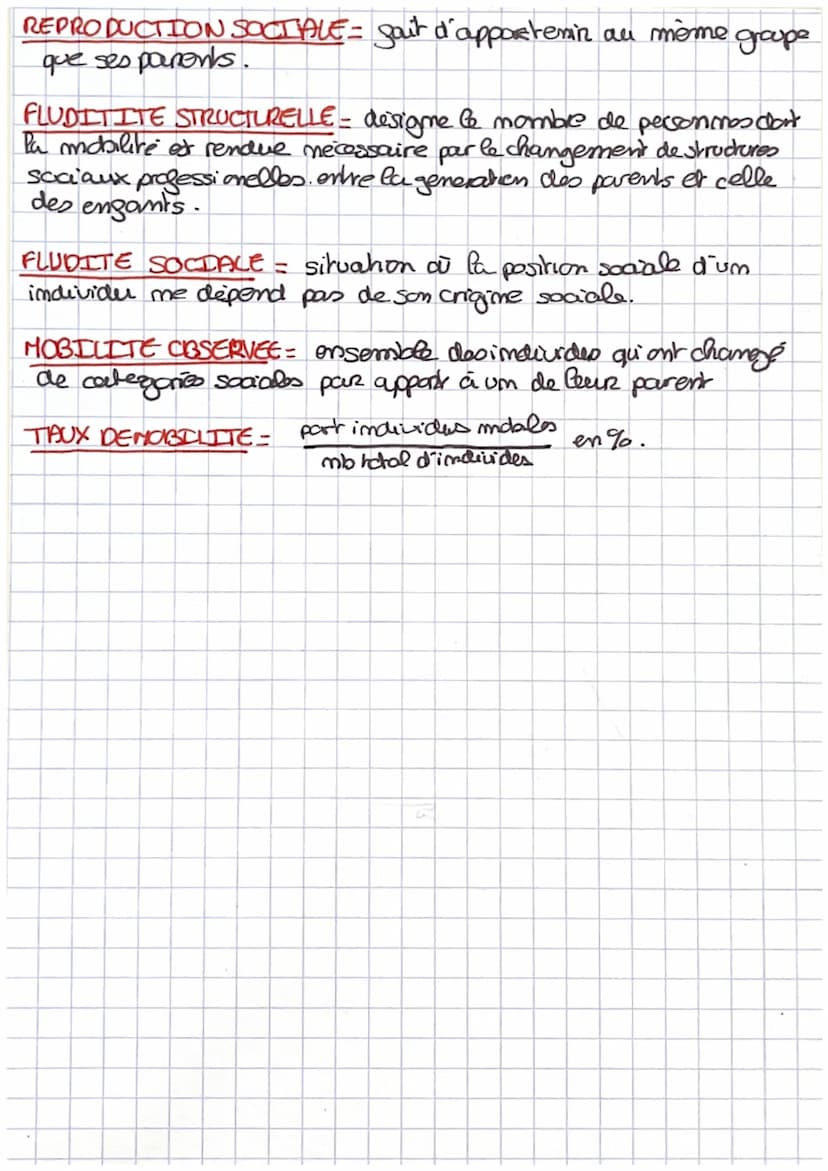 REPRODUCTION SOCIALE = fait d'appartenir au même groupe
que ses parents.
FLUDITITE STRUCTURELLE = designe le nombre de personnes dont
la mobilité est rendue necessaire par le changement de structures
sociaux professionelles. entre la generation des parents et celle
des enfants.
FLUDITE SOCIALE = situation où la position sociale d'un
individu ne dépend pas de son origine sociale.
MOBILITE OBSERVEE = ensemble des individus qui ont changé
de categories sociales par apport à un de leur parent
TAUX DE MOBILITE = part individus mobiles en %.
nb total d'individes